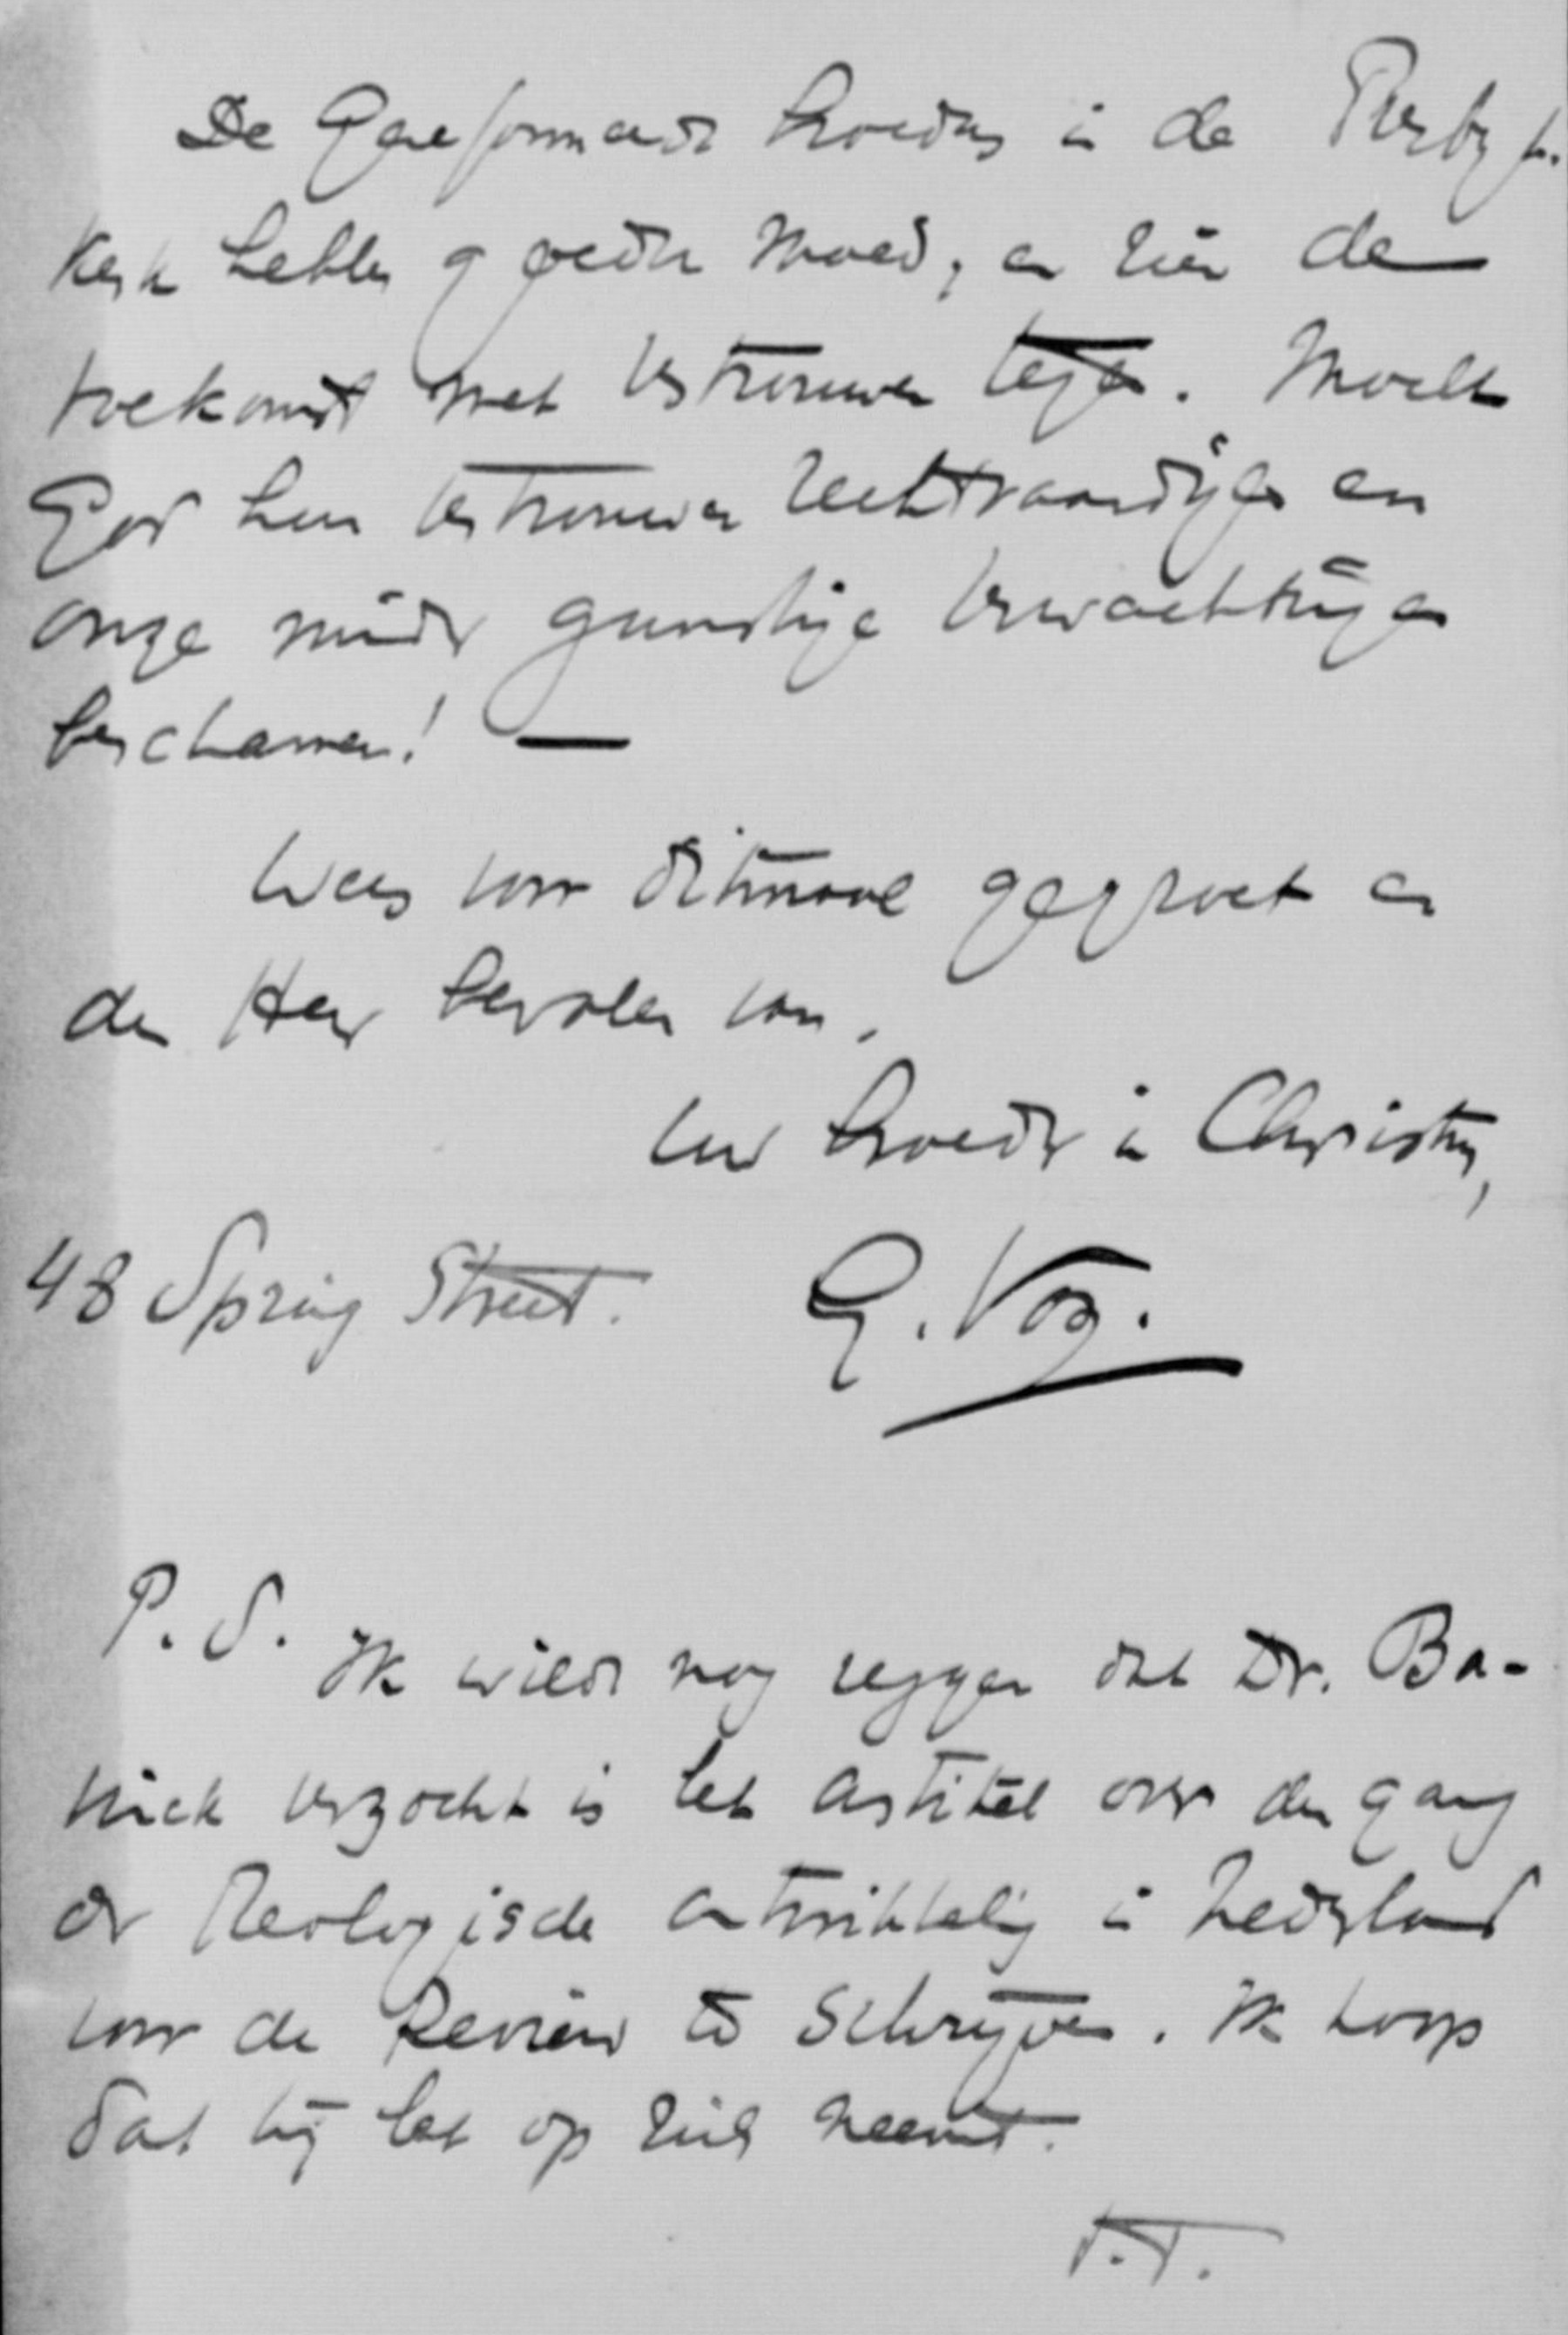 De Gereformeerde broeders in de Presbyt.
Kerk hebben goeden moed, en zien de
toekomst met vertrouwen tegen. Mocht
God hun vertrouwen rechtvaardigen en
onze minder gunstige verwachtingen
beschamen! —
Wees voor ditmaal gegroet en
den Heer bevolen van,
Uw broeder in Christus,
48 Spring Street. G. Vos.
P.S. Ik wilde nog zeggen dat Dr. Ba-
vinck verzocht is het artikel over den gang
der Theologische ontwikkeling in Nederland
voor de Review te schrijven. Ik hoop
dat hij het op zich neemt.
T.T.